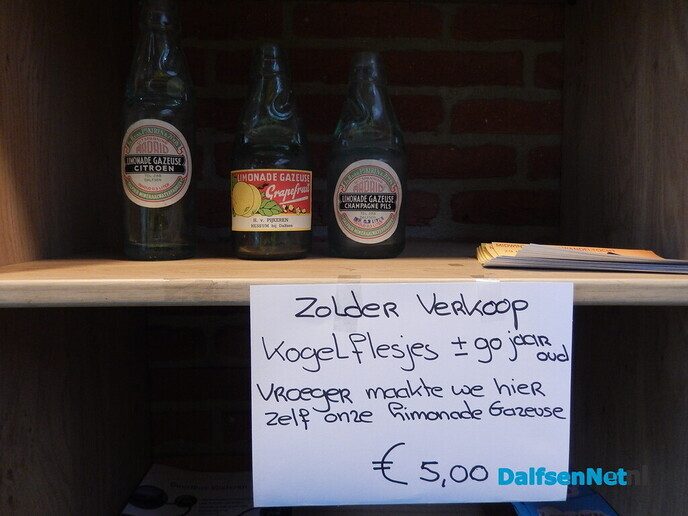 LIMONADE GAZEUSE
CITROEN
LIMONADE GAZEUSE
Grapefruit
H. v. PIJKEREN
HESSUM bij Dalfsen
LIMONADE GAZEUSE
CHAMPAGNE PILS
ZOLDER VERKOOP
Kogelflesjes ± 90 jaar
oud
VROEGER maakte we hier
zelf onze Limonade Gazeuse
€ 5,00
DalfsenNet.nl